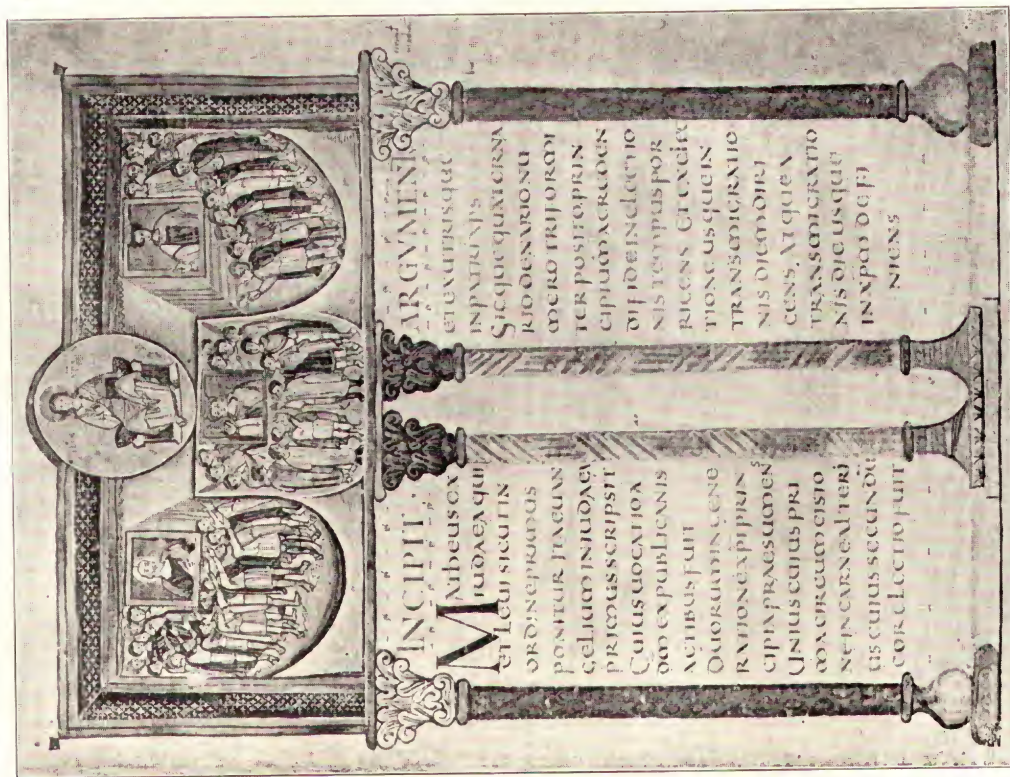 INCIPIT ARGVMENT
MATHEUS EX
IUDAEA QUI
ET LEUI SICUT IN
ORDINE PRIMUS
PONITUR ITA EUAN
GELIUM IN IUDAEA
PRIMUS SCRIPSIT
CUIUS UOCATIO A
DM EX PUBLICANIS
ACTIBUS FUIT
DUORUM IN GENE
RATIONE XPI PRIN
CIPIA PRAESUMENS
UNIUS CUIUS PRI
MA CIRCUMCISIO
NE IN CARNE ALTERI
US CUIUS SECUNDU
COR ELECTIO FUIT
ET EX UTRISQUE
IN XPS
SICQUE QUATERNA
RIO DENARIO NU
MERO TRIFORMI
TER POSITO PRIN
CIPIUM A CREDEN
DI FIDE IN ELECTIO
NIS TEMPUS POR
RIGENS ET EX ELEC
TIONE USQUE IN
TRANSMIGRATIO
NIS DIEM DIRI
GENS. ATQUE A
TRANSMIGRATIO
NIS DIE USQUE
IN XPM DEFI
NIENS